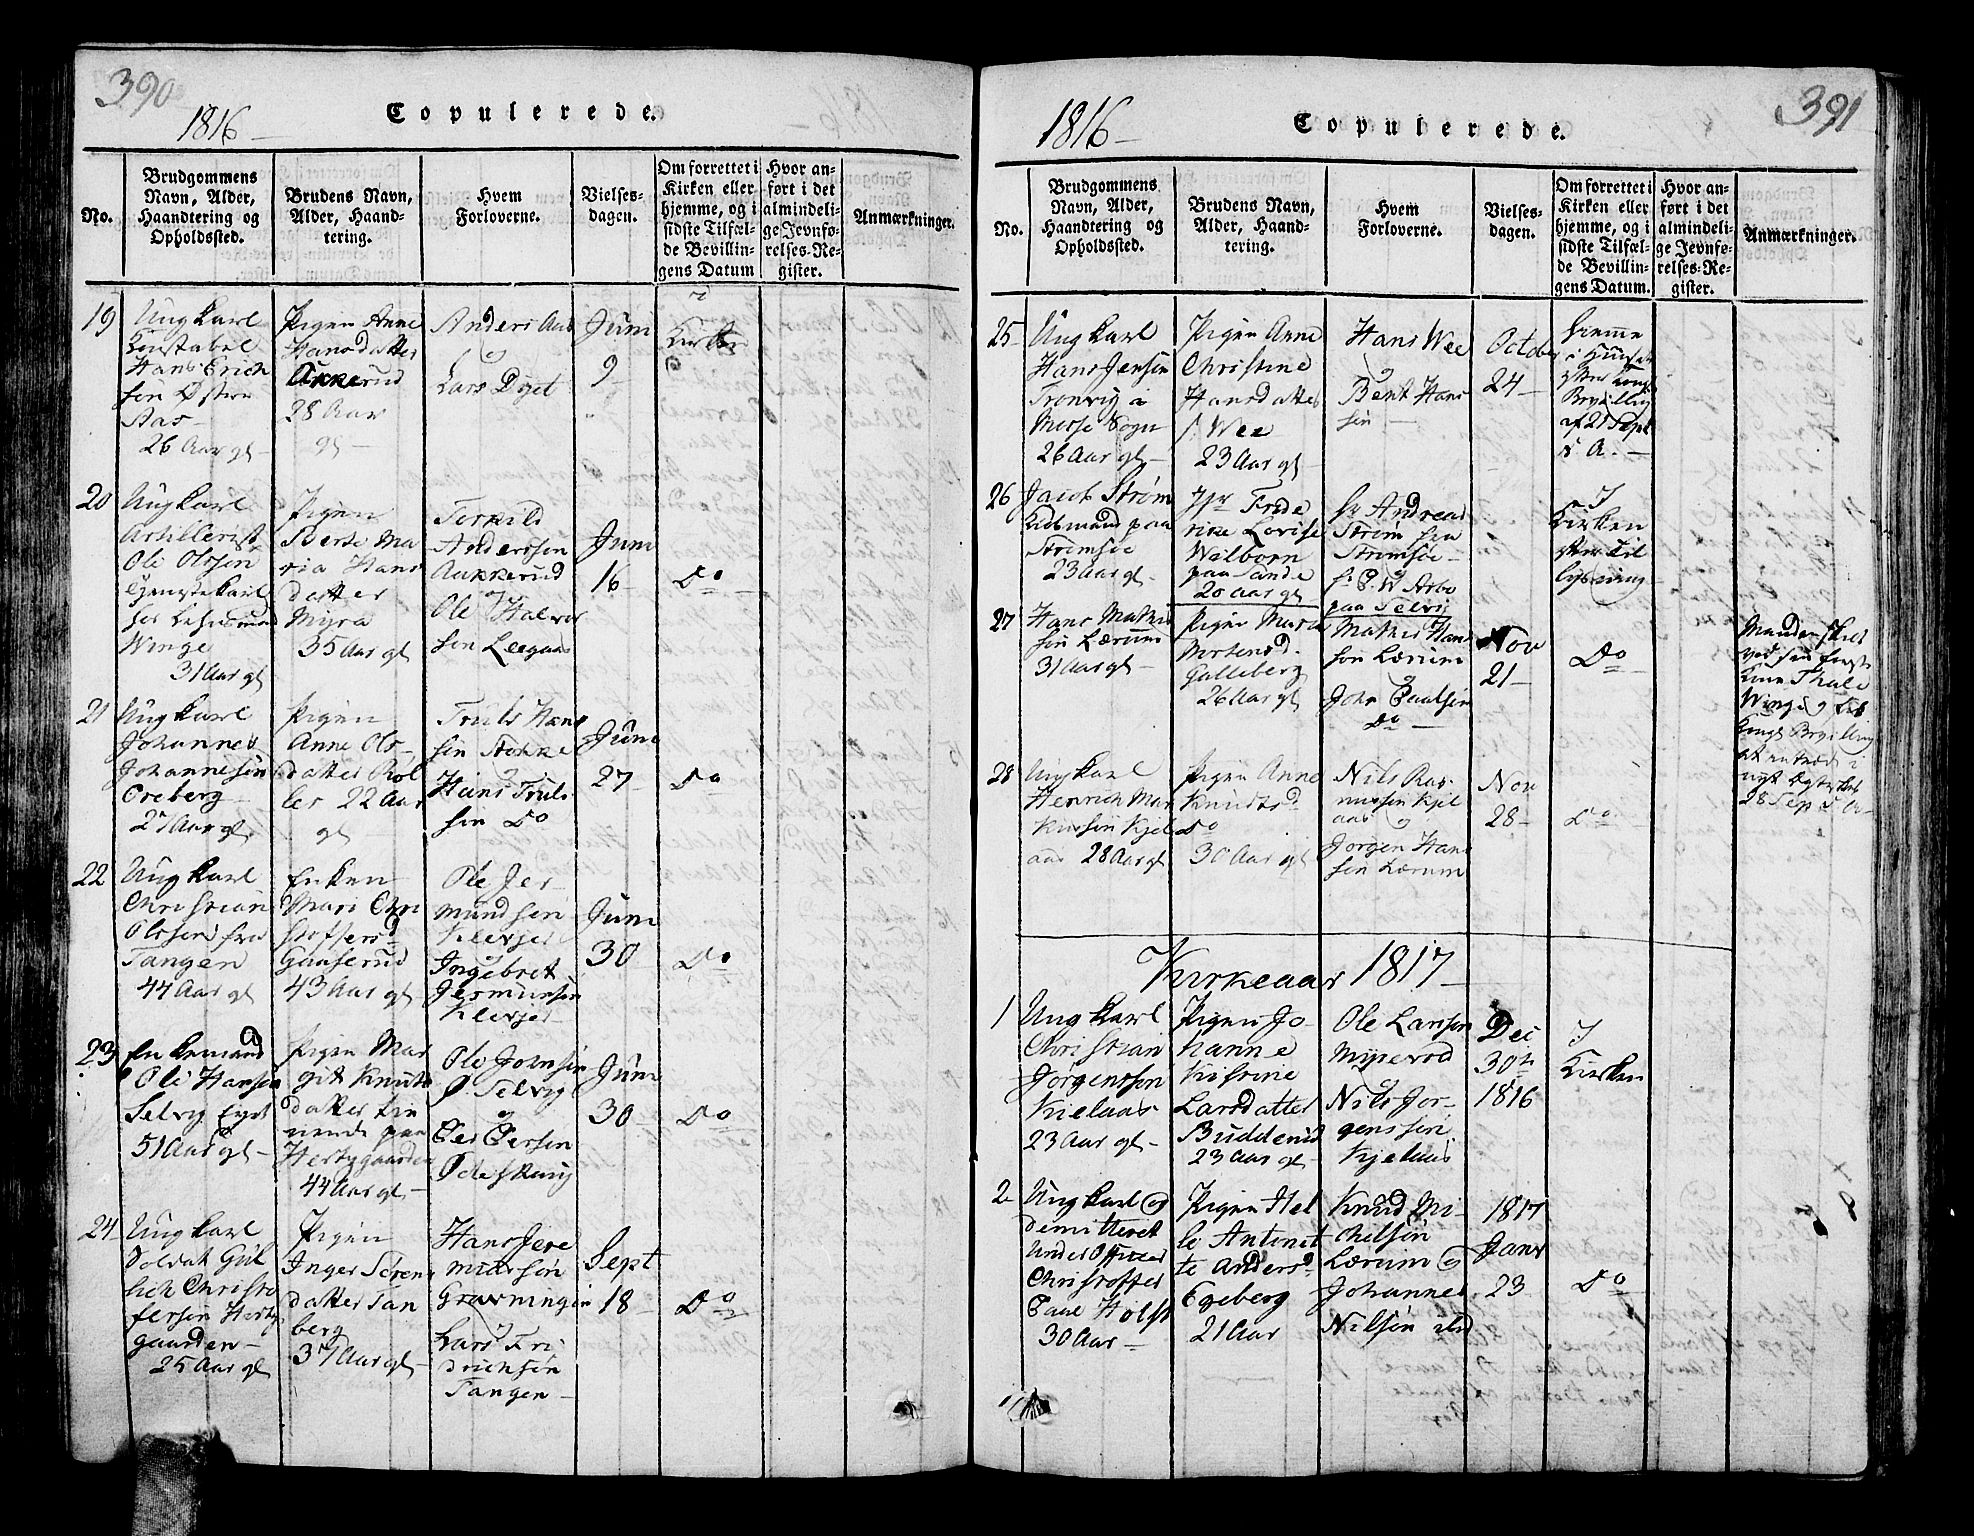 390
1816 –
Copulerede.
No.
Brudgommens
Navn, Alder,
Haandtering og
Opholdssted.
Brudens Navn,
Alder, Haand-
tering.
Hvem
Forloverne.
Vielses-
dagen.
Om forrettet i
Kirken eller
hjemme, og i
sidste Tilfæl-
de Bevillin-
gens Datum
Hvor an-
ført i det
almindeli-
ge Jevnfø-
relses-Re-
gister.
Anmærkninger.
19
Ung Karl
Hans Erich
sen Østre
Aas –
26 Aar gl –
Pigen Anne
Hansdatter
28 Aar
gl –
Anders Aas
og
Lars
Juni
9 –
i
Kirken
20
Ung Karl
Artillerist
Ole Olssen
Tjenestekarl
hos
Winge
31 Aar gl
Pigen
Berte Ma
ria Hans
datter
Myra
35 Aar gl
Terkild
Anderssen
Aukkerud
og
Ole Halvor
sen Leegaas
Juni
16 –
Do
21
Ung Karl
Johannes
Johannesen
Oreberg –
27 Aar gl.
Pigen
Anne Ols-
datter Røl
les 22 Aar
gl
Truls Hans
sen Stokke
og
Hans Truls
sen Do
Juni
27 –
Do
22
Ung Karl
Christian
Olssen fra
Tangen
44 Aar gl
Enken
Mari Chri
stoffersd
Gaaserud
43 Aar gl
Ole Jer-
mundsen
Klevjer
og
Ingebret
Jermunsen
Klevjer –
Juni
30
Do
23
Enkemand
Ole Hansen
Selvig
51 Aar gl –
Pigen Mar
git Knuts
datter tie
nende paa
Hertygaarden
44 Aar gl –
Ole Johnsen
Ø. Selvig
og
Per Persen
Ødeskaug
Juni
30
Do
24
Ung Karl
Soldat Gul
lich Christo
fersen Herty
gaarden –
25 Aar gl
Pigen
Inger Sørens
datter Tan
berg
37 Aar gl –
Hans Jere
miassen
Gravningen
og
Lars Fri
drichsen
Tangen –
Sept
18 –
Do
391
1816 –
Copulerede.
No.
Brudgommens
Navn, Alder,
Haandtering og
Opholdssted.
Brudens Navn,
Alder, Haand-
tering.
Hvem
Forloverne.
Vielses-
dagen.
Om forrettet i
Kirken eller
hjemme, og i
sidste Tilfæl-
de Bevillin-
gens Datum.
Hvor an-
ført i det
almindeli-
ge Jevnfø-
relses-Re-
gister.
Anmærkninger.
25
Ung Karl
Hans Jensen
Tronvig i
Sogn
26 Aar gl –
Pigen Anne
Christine
Hansdatter
Wee
23 Aar gl
Hans Wee
og
Bent Han
sen –
October
24 –
hiemme
i Huuset
efter Kongl
Bevilling
af 21 Sept
s A. –
26
Jacob Strøm
Kiøbmand paa
Strømsøe
23 Aar gl –
Jfr Frede
rikke Lovise
Walborn
paa Sande
20 Aar gl
Hr Andreas
Strøm fra
Strømsøe –
Hr P W Arbo
paa Selvig
I
Kirken
efter Til
lysning
27
Hans Mathis
sen Lærum
31 Aar gl –
Pigen Maria
Mortensd.
Galleberg
26 Aar gl
Mathis Han
sen Lærum
og
John Paulsen
Do –
Nov
21 –
Do
Manden skilt
ved sin første
Kone Thale
Winge og
Kongl Bevilling
at indtræde i
nyt Ægteskab
28 Sept s A –
28
Ung Karl
Henrich Mar
kussen Kjel
aas 28 Aar gl
Pigen Anne
Knudtsd
Do
30 Aar gl
Nils Ras-
mussen Kjel
aas og
Jørgen Han
sen Lærum
Nov
28 –
Do
Kirkeaar 1817 –
1
Ung Karl
Christian
Jørgenssen
Kielaas
23 Aar gl –
Pigen Jo-
hanne
Kistine
Larsdatter
Budderud
23 Aar gl –
Ole Larssen
Myperød
og
Nils Jør-
genssen
Kjelaas
Dec
30te
1816
I
Kirken
2
Ung Karl og
demitteret
Under Officer
Christoffer
Paul Holst
30 Aar –
Pigen Hel
le Antonet
te Andersd
Eqeberg
21 Aar
Knud Mi-
chelsen
Lærum og
Johannes
Nilsen
1817
Janr
23
Do